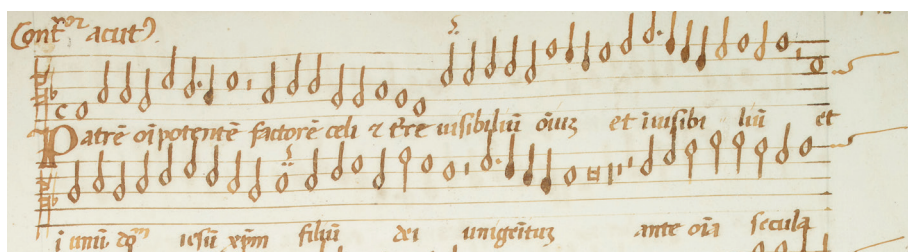 Contrᵃ acut9
Patrē oīpotentē factorē celi & t̄rē uisibiliū oīuꝫ et īuisibi liū et
ī unū dn̄m iesū xp̄m filiū dei unigēituꝫ ante oīa secula